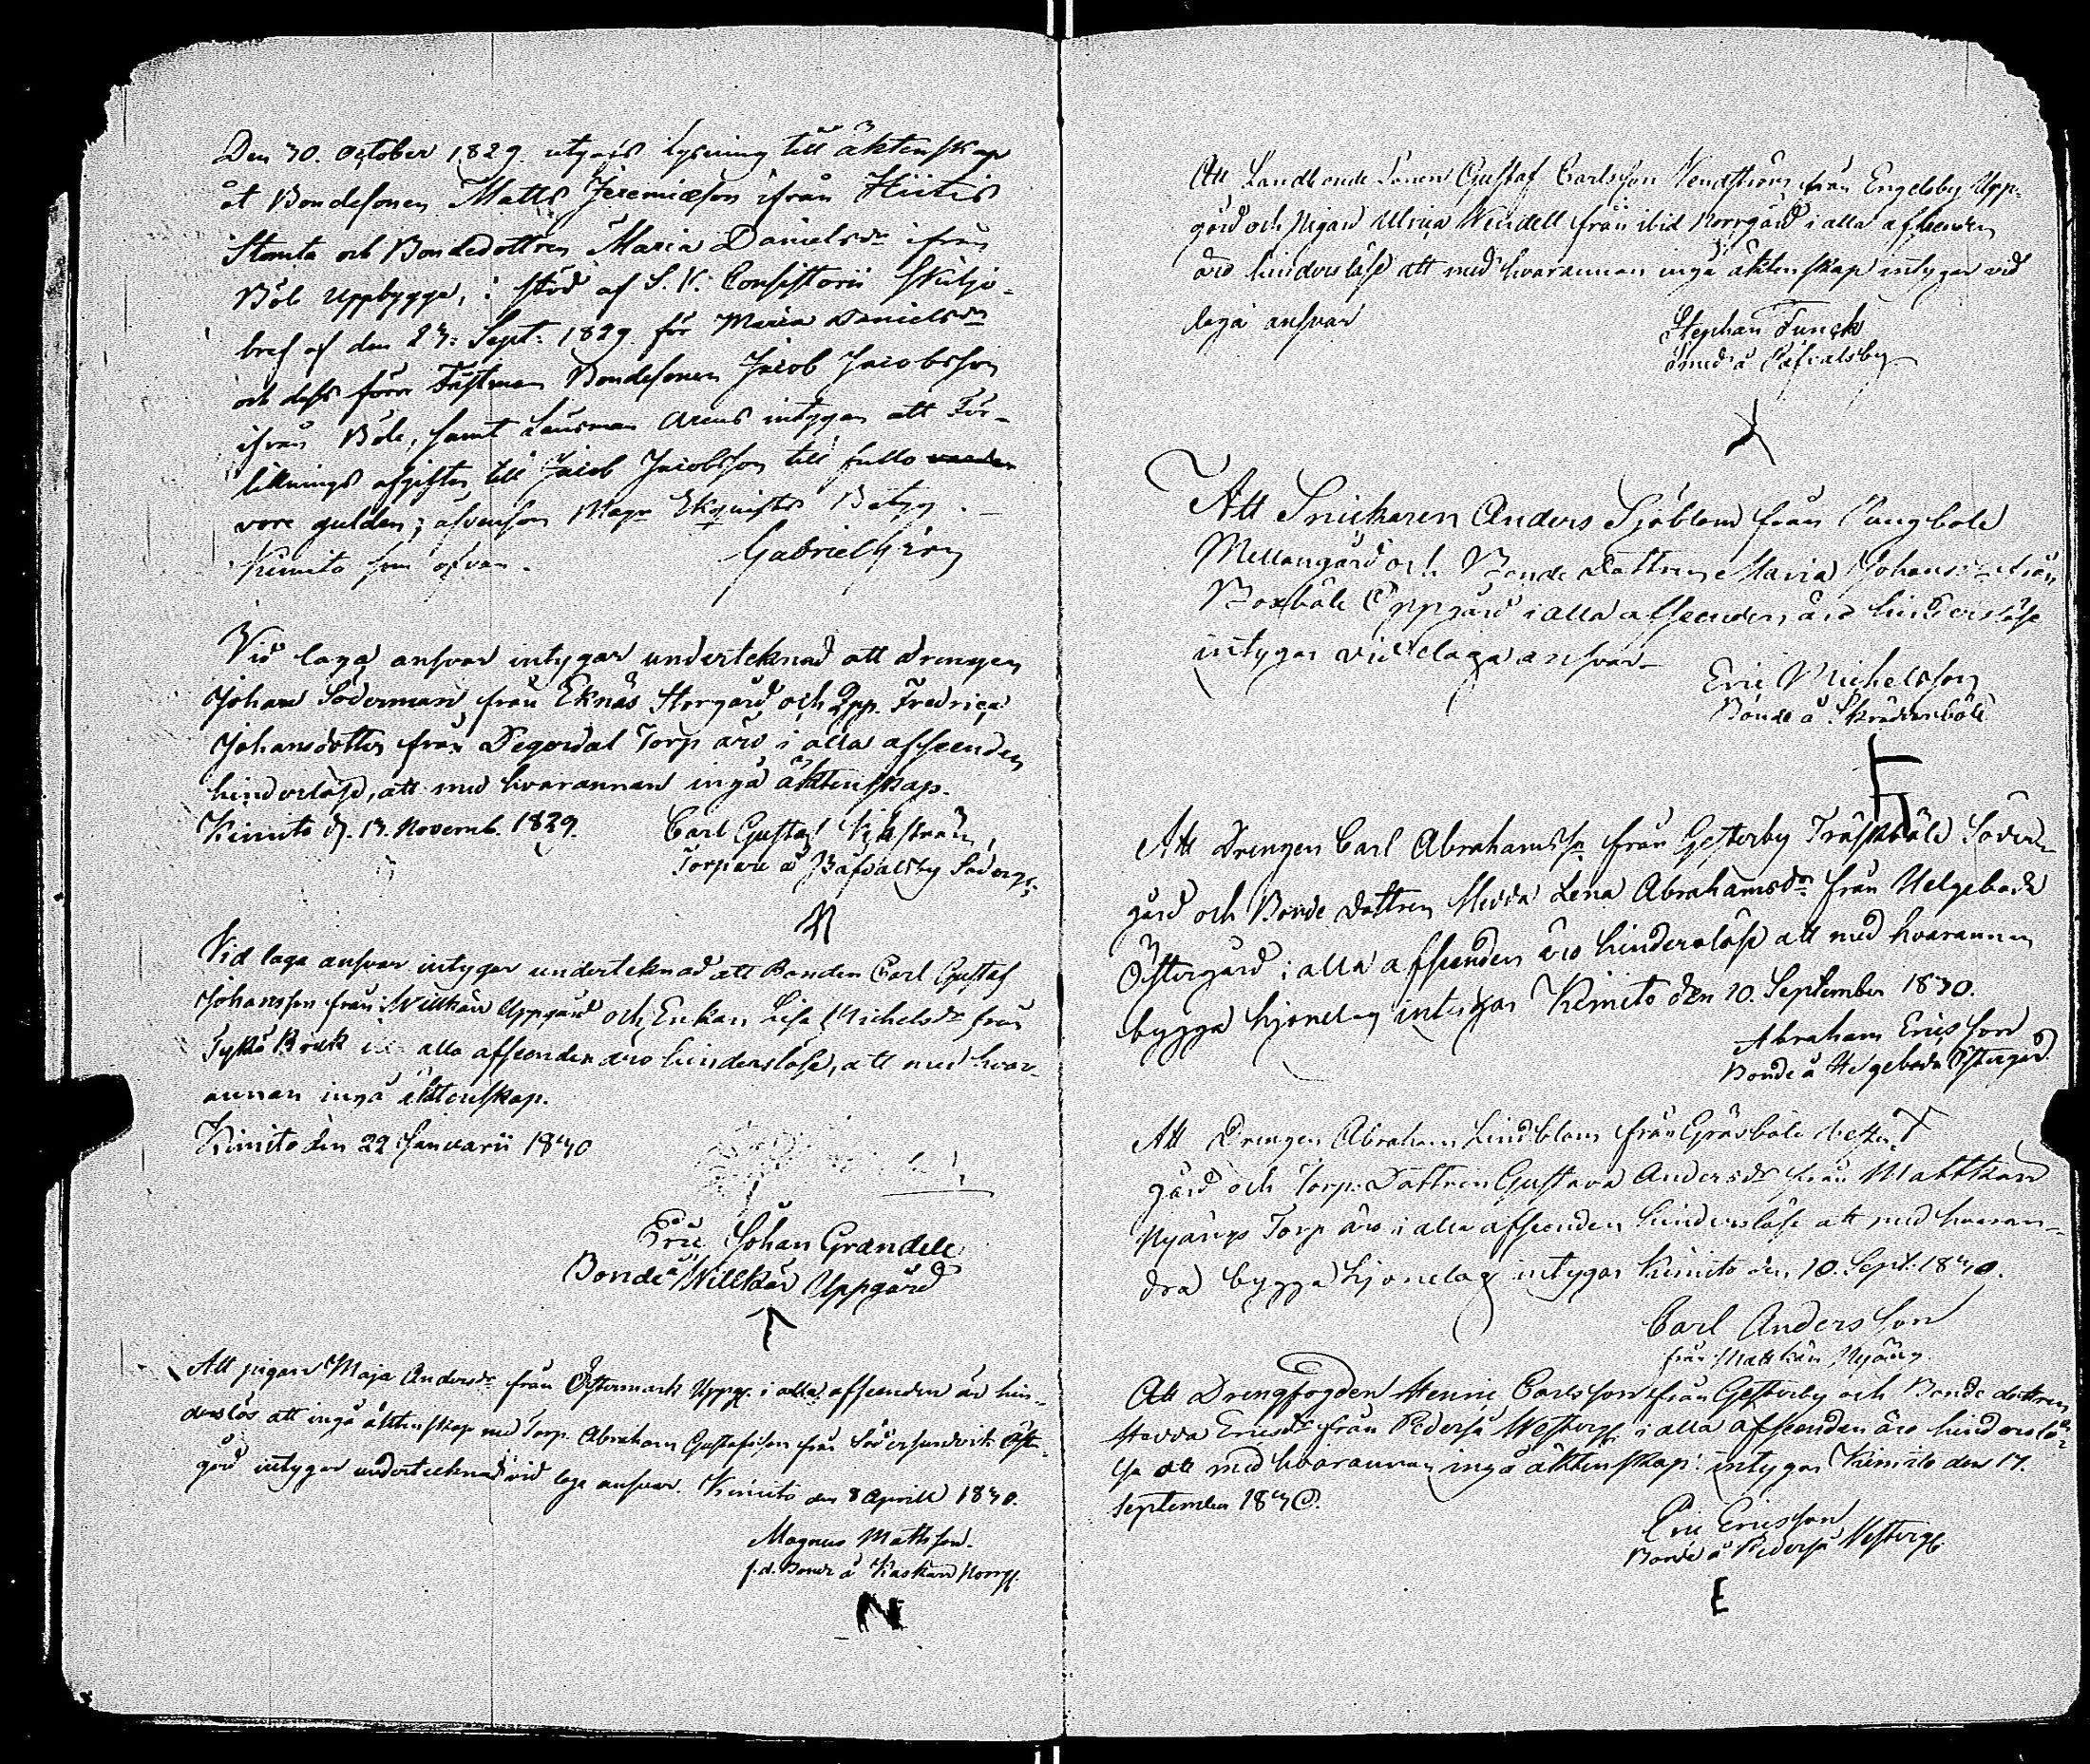 Den 30. October 1829. utgafs Lysning till äktenskap
åt Bondesonen Matts Jeremiæson ifrån Hiitis
Stomta och Bondedottren Maria Danielsdr ifrån
Böle Uppbygge, i stöd af S. V. Consistorii Skiljo-
bref af den 23: Sept: 1829. för Maria Danielsdr
och dess förre Fästman Bondesonen Jacob Jacobsson
ifrån Böle, samt Länsman Arenii intygan att För-
liknings afgiften till Jacob Jacobsson till fullo
vore gulden; äfvensom Magr Ekqvists Betyg.
Kimito som ofvan. Gabriel
Vid laga ansvar intygar undertecknad att drengen
Johan Söderman från Eknäs Storgård och Fredrica
Johansdotter från Degerdal Torp äro i alla afseenden
hinderslöse, att med hvarannan ingå äktenskap.
Kimito d. 13. Novemb. 1829. Carl Gustaf
Torpare å Båfvalsby Söderg:
Vid laga ansvar intygar underteknad att Bonden Carl Gustaf
Johansson från Willkär Uppgård och Enkan Lisa Michelsdr från
Tykö Bruk i alla afseenden äro hinderslöse, att med hvar-
annan ingå äktenskap.
Kimito den 22 Januarii 1830
Eric Johan Grandell
Bonde å Willkär Uppgård
Att pigan Maja Andersdr från Östermark Uppg. i alla afseenden är hin-
derslös att ingå äktenskap med Torp. Abraham Gustafsson från Södersundvik Öster-
gård intygar undertecknad vid laga ansvar. Kimito den 8 Aprill 1830.
Magnus Mathsson.
f.d. Bonde å Kaskär Norrg.
N
Att Landbonde Sonen Gustaf Carlsson Vendström från Engelsby Upp-
gård och Pigan Ulrica Windell från ibid Norrgård i alla afseenden
äro hinderslöse att med hvarannan ingå äktenskap intygar vid
laga ansvar Stephan Funck
Smed å Båfvalsby
Att Snickaren Anders Sjöblom från Lungböle
Mellangård och Bonde Dottren Maria Johansdr från
Boxböle Oppgård i alla afseenden äro hinderslöse
intygar vid laga ansvar. Eric Michelsson
Bonde å Skräddarböle
Att Drengen Carl Abrahamsson från Gesterby Träskböle Söder-
gård och Bonde Dottren Hedda Lena Abrahamsdr från Helgeboda
Östergård i alla afseenden äro hinderslöse att med hvarannan
bygga hjonelag intygar Kimito den 10. September 1830.
Abraham Ericsson
Bonde å Helgeboda Östergård.
Att Drengen Abraham Lindblom från Gräsböle Wester-
gård och Torp. Dottren Gustava Andersdr från Mattkärr
Nyängs Torp äro i alla afseenden hinderslöse att med hvaran-
dra bygga hjonelag intygar Kimito den 10. Sept. 1830.
Carl Andersson
från Mattkärr Nyäng.
Att Drengfogden Henric Carlsson från Gesterby och Bonde dottren
Hedda Ericsdr från Pederså Westerg. i alla afseenden äro hinderslö-
se att med hvarannan ingå äktenskap: intygar Kimito den 17.
September 1830.
Eric Ericsson
Bonde å Pederså Westerg.
E